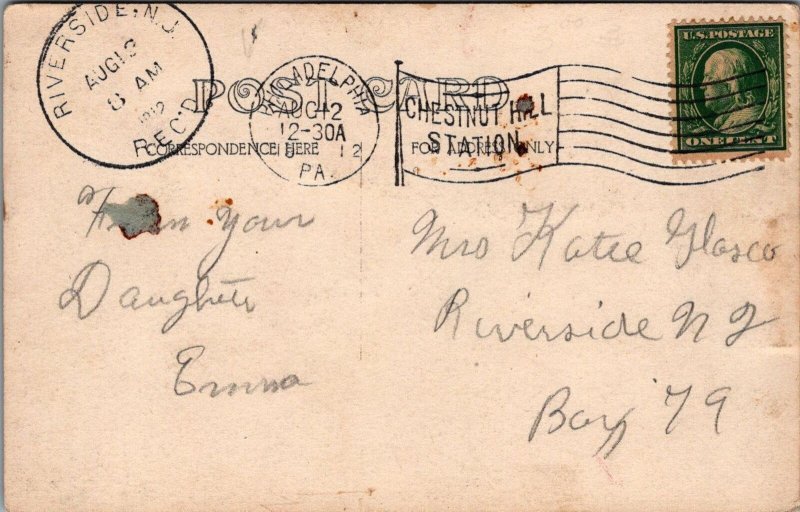 RIVERSIDE, N.J.
AUG 12
8 AM
1912
REC'D
POST CARD
PHILADELPHIA
AUG 12
12-30A
12
PA.
CHESTNUT HILL
STATION
U.S. POSTAGE
ONE CENT
CORRESPONDENCE HERE
FOR ADDRESS ONLY
From your
Daughter
Emma
Mrs Katie Glasco
Riverside N J
Box 79